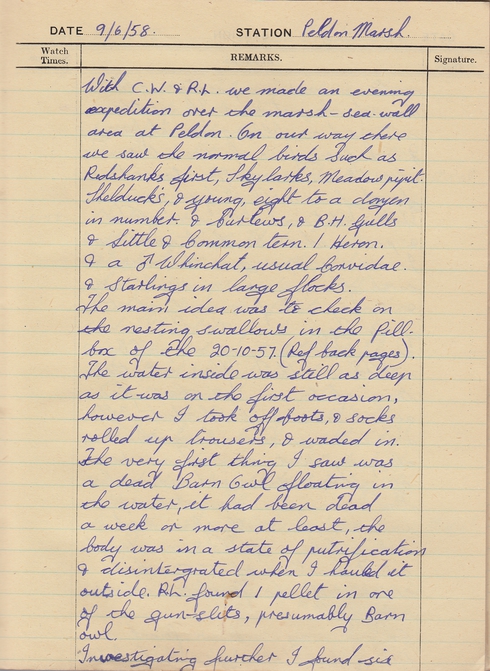 DATE 9/6/58. STATION Peldon Marsh.
Watch Times. REMARKS. Signature.
With C.W. & R.L. we made an evening
expedition over the marsh-sea-wall
area at Peldon. On our way there
we saw the normal birds such as
Redshanks first, Skylarks, Meadow pipit.
Shelducks, & young, eight to a dozen
in number & Curlews, & B.H. Gulls
& Little & Common tern. 1 Heron.
& a ♂ Whinchat, usual Corvidae.
& Starlings in large flocks.
The main idea was to check on
the nesting swallows in the Pill-
box of the 20-10-57. (Ref back pages).
The water inside was still as deep
as it was on the first occasion,
however I took off boots, & socks
rolled up trousers, & waded in.
The very first thing I saw was
a dead Barn Owl floating in
the water, it had been dead
a week or more at least, the
body was in a state of putrification
& disintergrated when I hauled it
outside. R.L. found 1 pellet in one
of the gun-slits, presumably Barn
owl.
Investigating further I found six